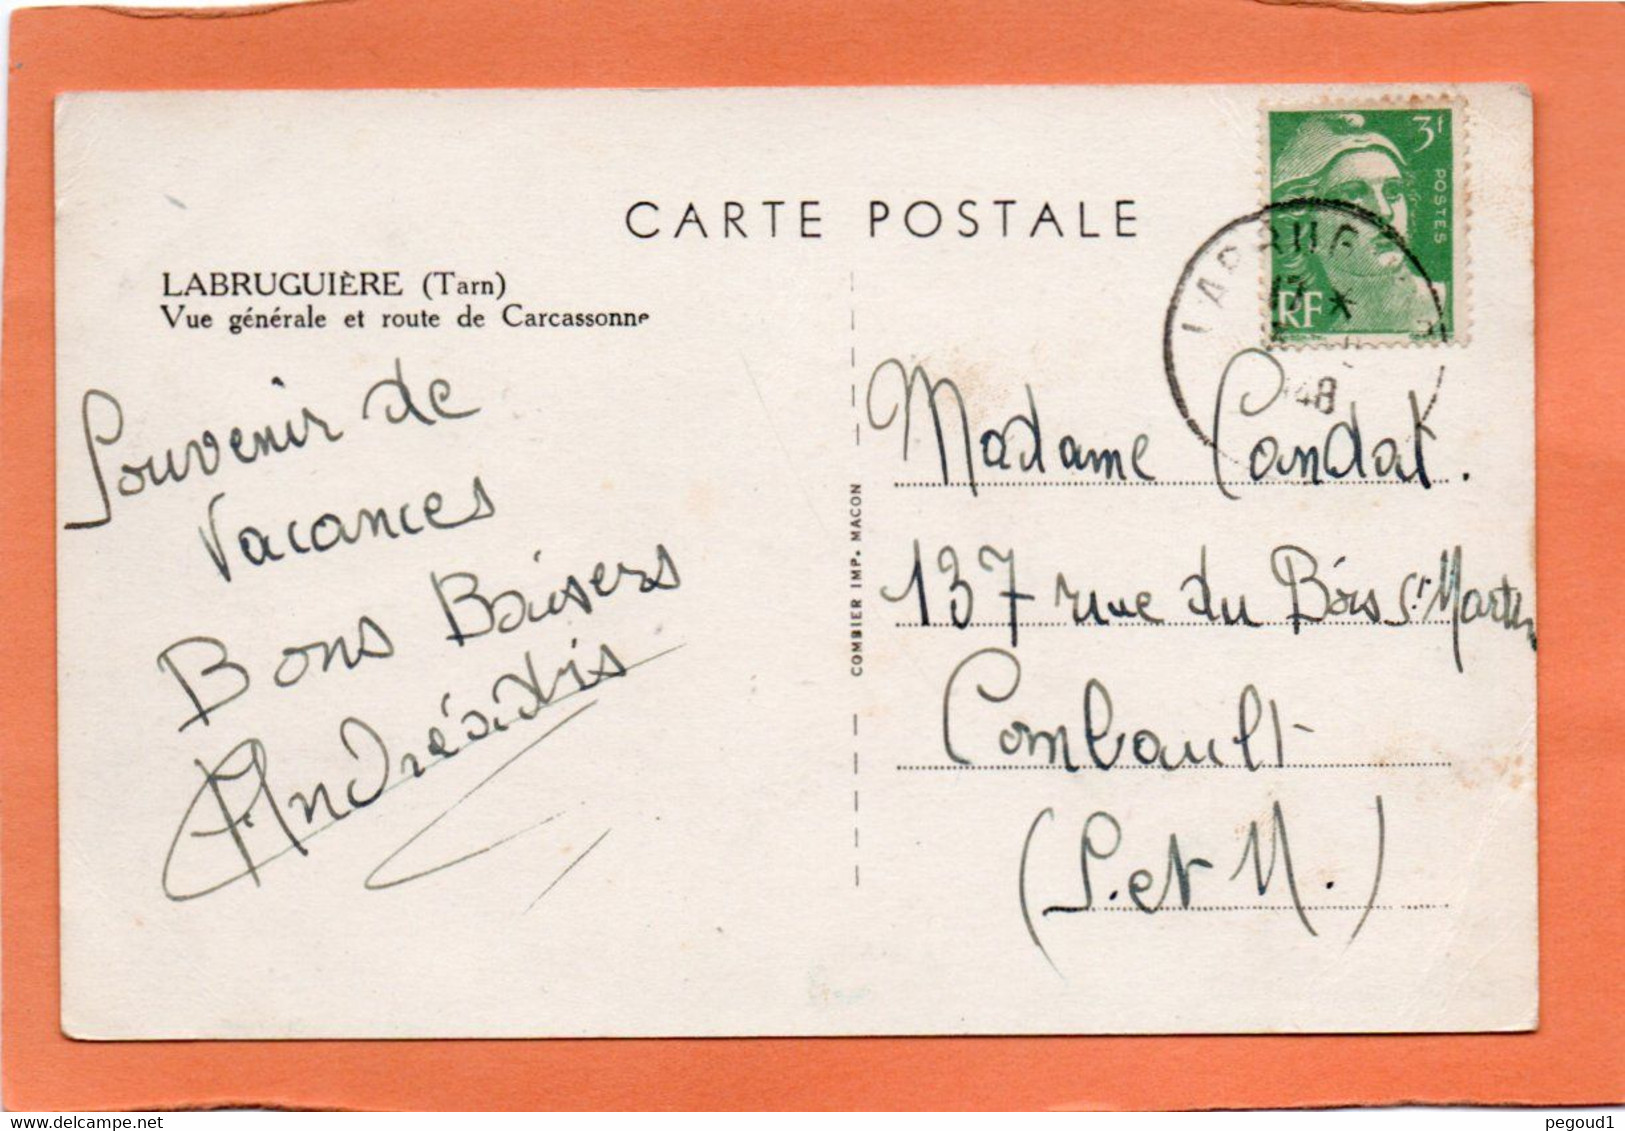 CARTE POSTALE
LABRUGUIÈRE (Tarn)
Vue générale et route de Carcassonne
Souvenir de
Vacances
Bons Baisers
COMBIER IMP. MACON
3f
POSTES
RF
13 *
48
Madame Candat.
137 rue du Bois St Martin
Combault
(S. et M.)
www.delcampe.net
pegoud1